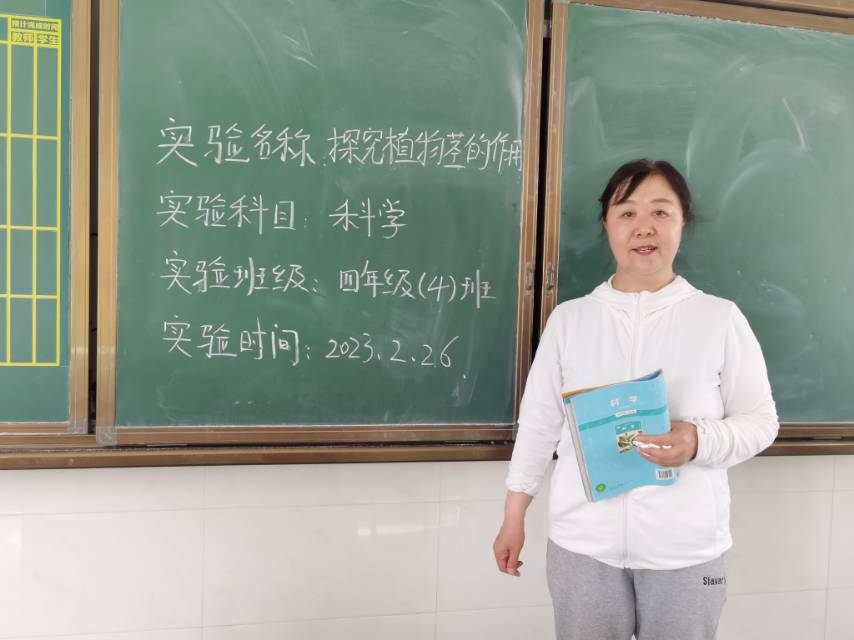 预计完成时间
教师 学生
实验名称:探究植物茎的作用
实验科目:科学
实验班级:四年级(4)班
实验时间:2023.2.26
科学